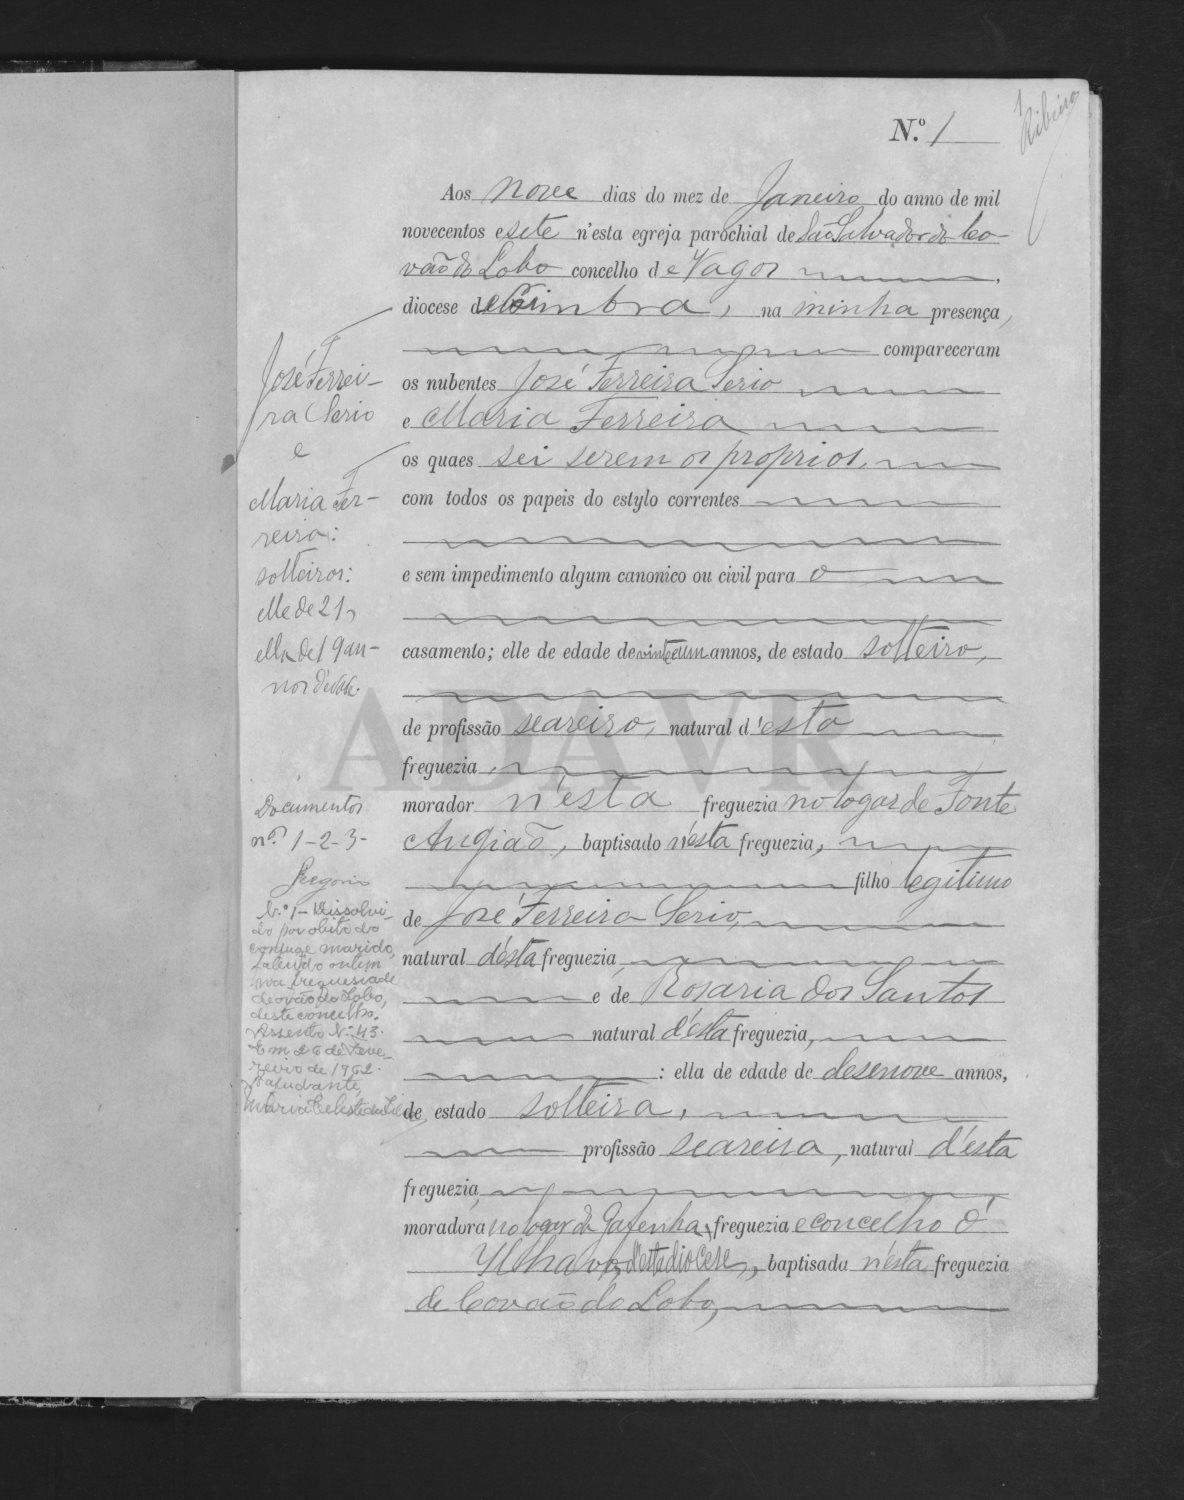 1
Ribeiro
N.º 1
Aos nove dias do mez de Janeiro do anno de mil
novecentos e sete n'esta egreja parochial de São Salvador do Co-
vão do Lobo concelho de Vagos
diocese de Coimbra, na minha presença,
compareceram
os nubentes José Ferreira Serio
e Maria Ferreira
os quaes sei serem os proprios,
com todos os papeis do estylo correntes
e sem impedimento algum canonico ou civil para o
casamento; elle de edade de vinte e um annos, de estado solteiro,
de profissão seareiro, natural d'esta
freguezia,
morador n'esta freguezia no logar de Fonte
Angião, baptisado n'esta freguezia,
filho legitimo
de José Ferreira Serio,
natural d'esta freguezia,
e de Rosaria dos Santos
natural d'esta freguezia,
: ella de edade de desenove annos,
de estado solteira,
profissão seareira, natural d'esta
freguezia,
moradora no logar da Gafenha, freguezia e concelho d'
Ilhavo, d'esta diocese, baptisada n'esta freguezia
de Covão do Lobo,
José Ferrei-
ra Serio
e
Maria Fer-
reira:
solteiros:
elle de 21,
ella de 19 an-
nos d'edade.
Documentos
nºs 1-2-3-
Gregorio
N.º 1 - Dissolvi-
do por obito do
conjuge marido,
falecido ontem
na freguesia de
Covão do Lobo,
deste concelho.
Assento N.º 43.
Em 26 de Feve-
reiro de 1962.
A ajudante,
Maria Celeste da
ADAVR